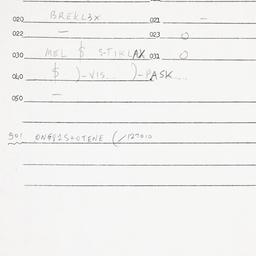 020 BREKL3X 021 –
022 – 023 0
030 MEL $ S-TIKLAX 031 0
040 $ )-VIS... )-PASK....
050 –
901